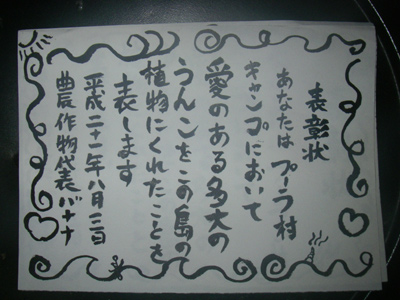 表彰状
あなたは プーラ村
キャンプにおいて
愛のある多大の
うんこをこの島の
植物にくれたことを
表します
平成二十一年八月二日
農作物代表バナナ